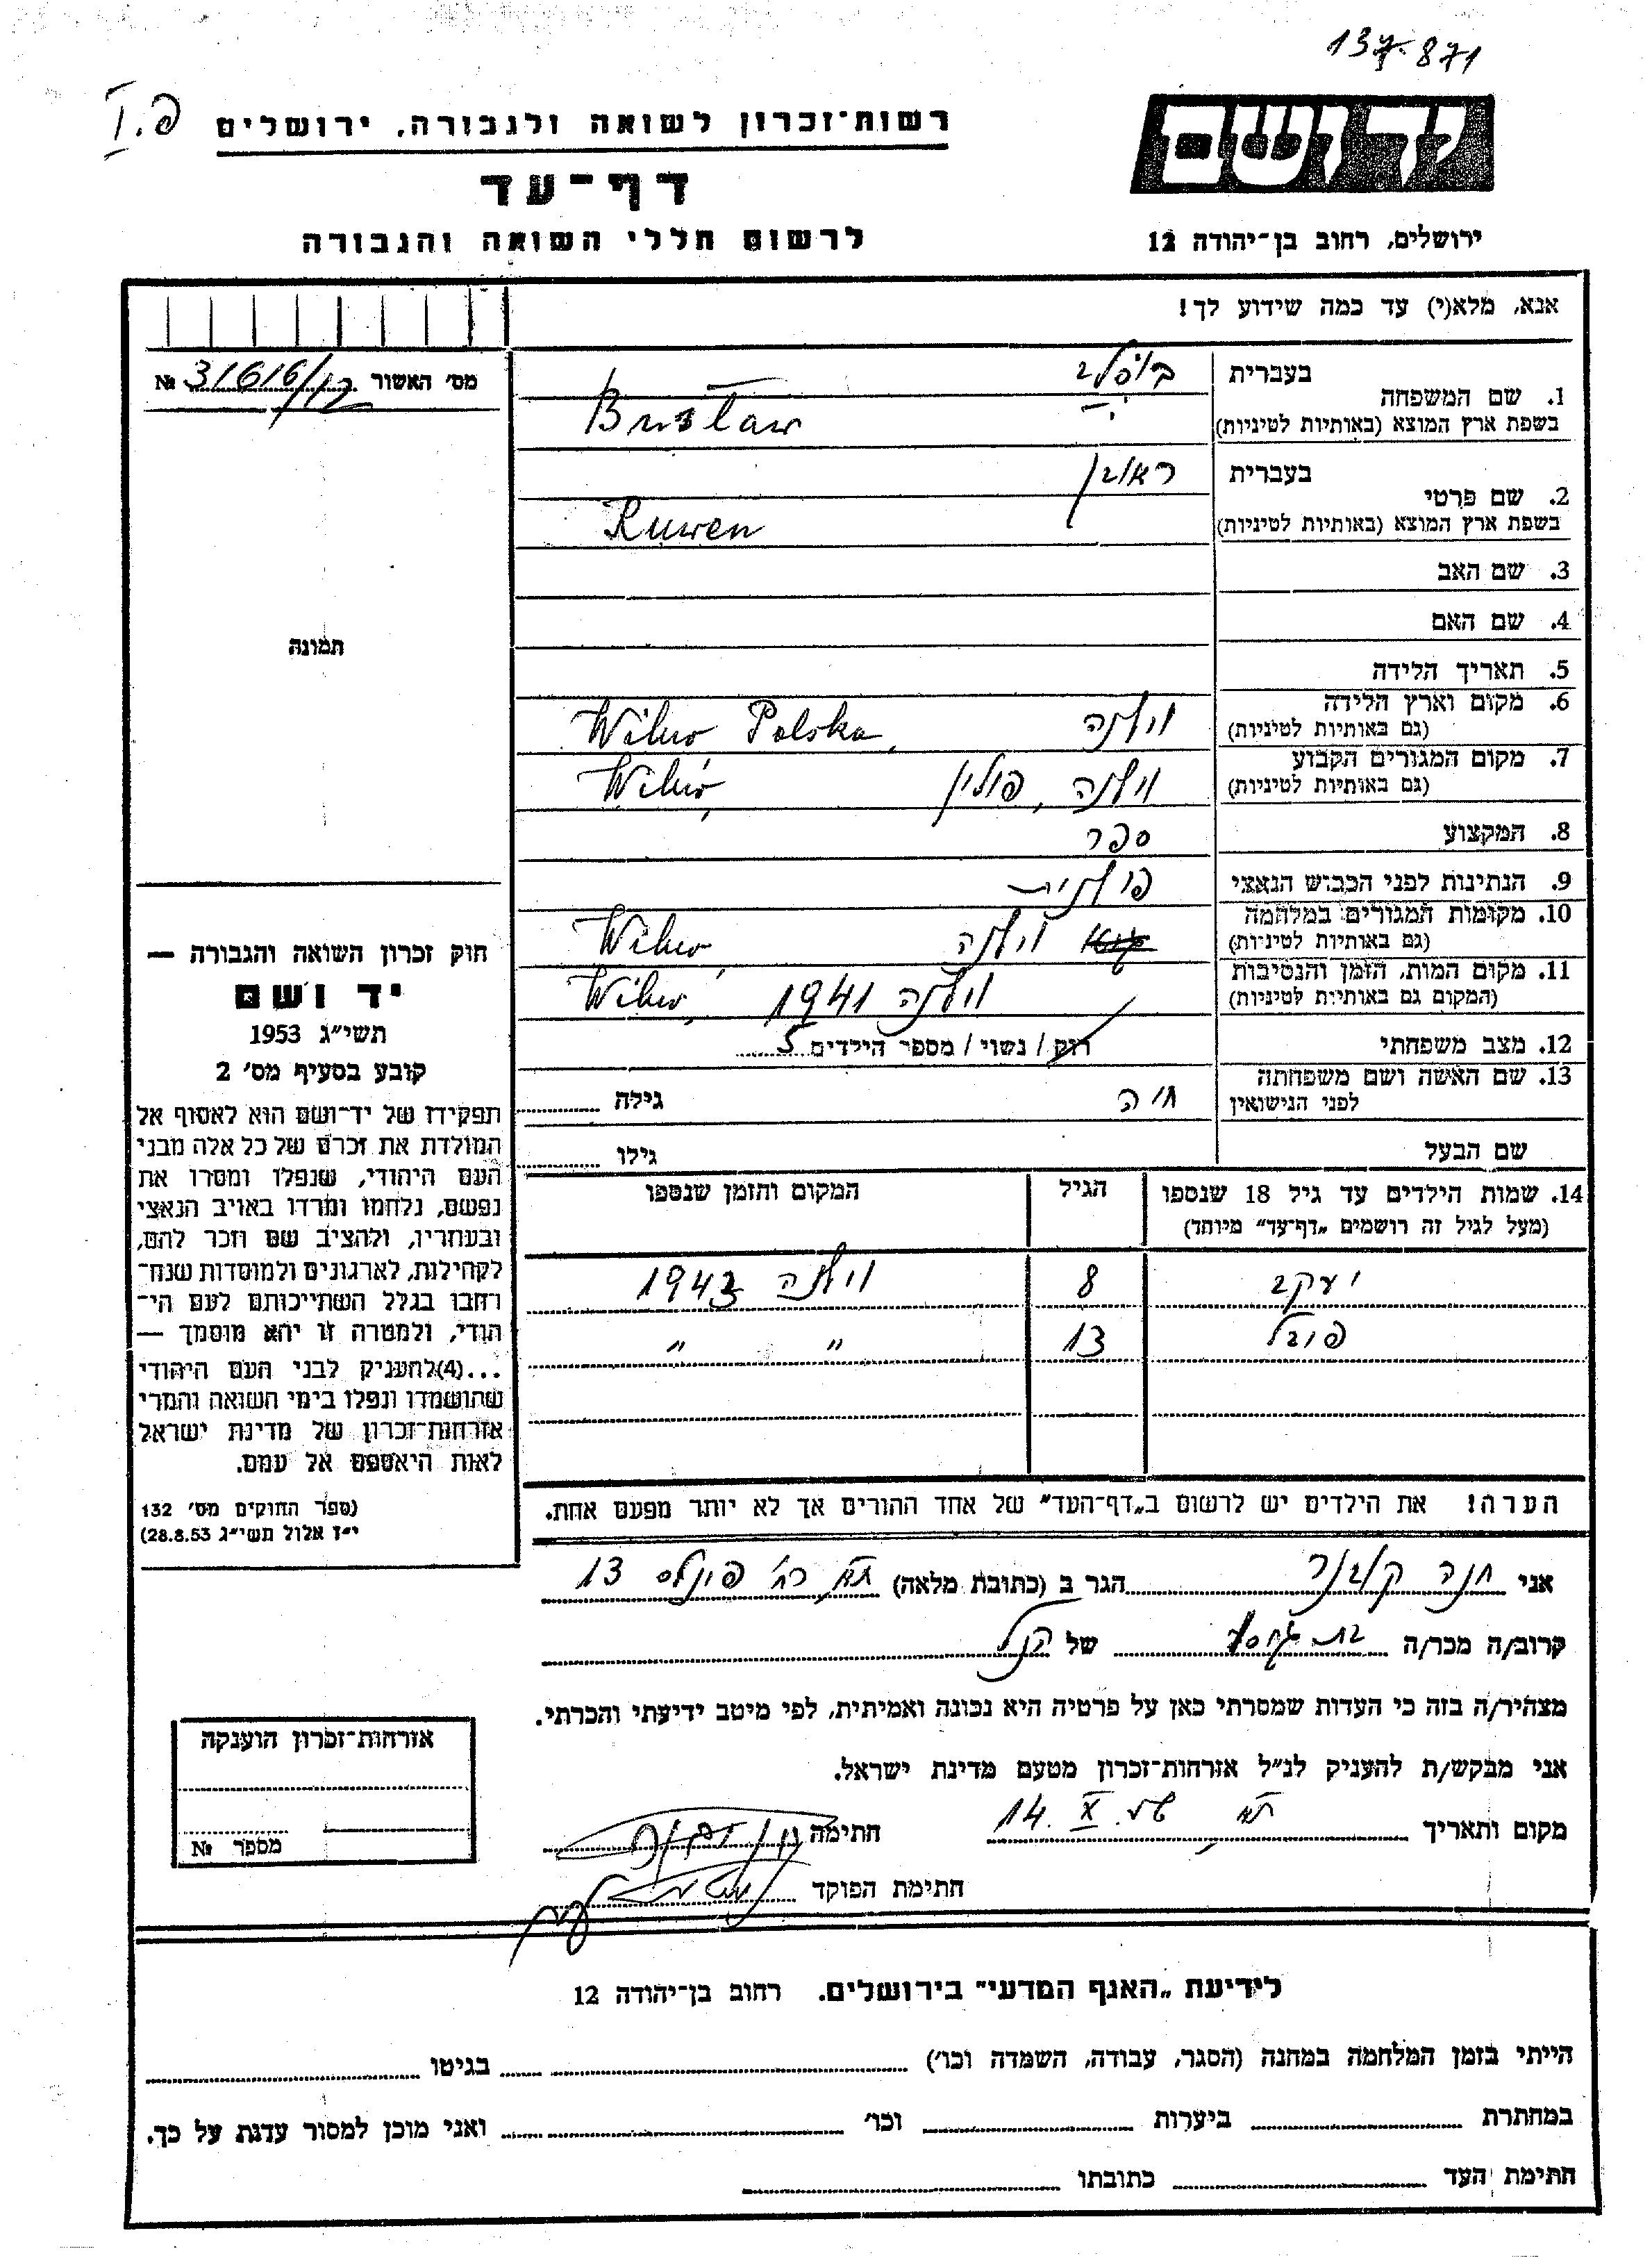 137-871
פ.I
רשות־זכרון לשואה ולגבורה, ירושלים
דף־עד
לרשום חללי השואה והגבורה
יד ושם
ירושלים, רחוב בן־יהודה 12
אנא, מלא(י) עד כמה שידוע לך!
מס' האשור 31616/12 №
תמונה
1. שם המשפחה
בעברית
בשפת ארץ המוצא (באותיות לטיניות)
Brusław
2. שם פרטי
בעברית ראובן
בשפת ארץ המוצא (באותיות לטיניות) Ruwen
3. שם האב
4. שם האם
5. תאריך הלידה
6. מקום וארץ הלידה (גם באותיות לטיניות) וילנה Wilno Polska
7. מקום המגורים הקבוע (גם באותיות לטיניות) וילנה, פולין Wilno,
8. המקצוע ספר
9. הנתינות לפני הכבוש הנאצי פולנית
10. מקומות המגורים במלחמה (גם באותיות לטיניות) וילנה Wilno,
11. מקום המות, הזמן והנסיבות (המקום גם באותיות לטיניות) וילנה 1941 Wilno,
12. מצב משפחתי רוק / נשוי / מספר הילדים
13. שם האשה ושם משפחתה לפני הנישואין חיה גילה
שם הבעל גילו
14. שמות הילדים עד גיל 18 שנספו (מעל לגיל זה רושמים „דף־עד" מיוחד) הגיל המקום והזמן שנספו
יעקב 8 וילנה 1943
13 " "
הערה! את הילדים יש לרשום ב„דף־העד" של אחד ההורים אך לא יותר מפעם אחת.
חוק זכרון השואה והגבורה —
יד ושם
תשי"ג 1953
קובע בסעיף מס' 2
תפקידו של יד־ושם הוא לאסוף אל
המולדת את זכרם של כל אלה מבני
העם היהודי, שנפלו ומסרו את
נפשם, נלחמו ומרדו באויב הנאצי
ובעוזריו, ולהציב שם וזכר להם,
לקהילות, לארגונים ולמוסדות שנח־
רחבו בגלל השתייכותם לעם הי־
הודי, ולמטרה זו יהא מוסמך —
...(4)להעניק לבני העם היהודי
שהושמדו ונפלו בימי השואה והמרי
אזרחות־זכרון של מדינת ישראל
לאות היאספם אל עמם.
(ספר החוקים מס' 132
י"ז אלול תשי"ג 28.8.53)
אני חנה הגר ב (כתובת מלאה) 13
קרוב/ה מכר/ה של הנ"ל
מצהיר/ה בזה כי העדות שמסרתי כאן על פרטיה היא נכונה ואמיתית, לפי מיטב ידיעתי והכרתי.
אני מבקש/ת להעניק לנ"ל אזרחות־זכרון מטעם מדינת ישראל.
מקום ותאריך 14. X חתימה
חתימת הפוקד
אזרחות־זכרון הוענקה
מספר №
לידיעת „האגף המדעי" בירושלים. רחוב בן־יהודה 12
הייתי בזמן המלחמה במחנה (הסגר, עבודה, השמדה וכו') בגיטו
במחתרת ביערות וכו' ואני מוכן למסור עדות על כך.
חתימת העד כתובתו